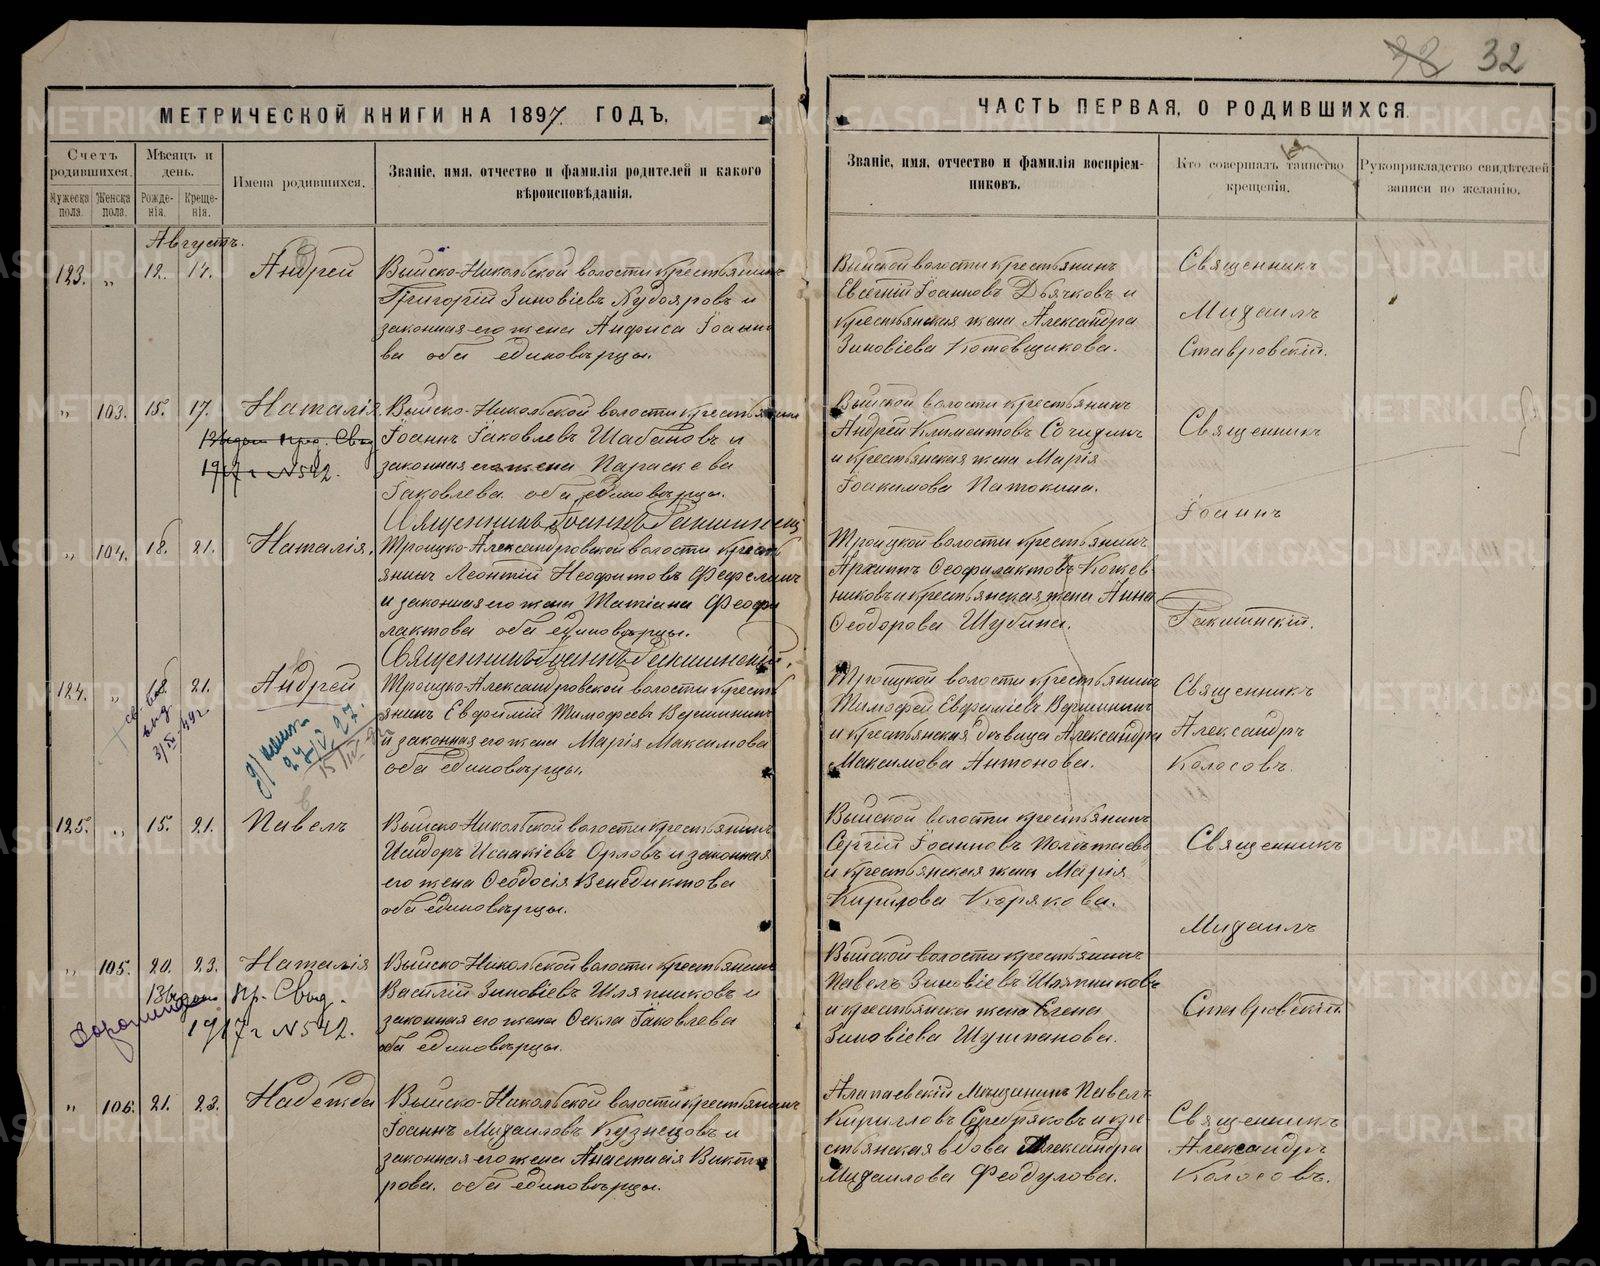 32
МЕТРИЧЕСКОЙ КНИГИ НА 1897 ГОДЪ,
Счетъ родившихся.
Мѣсяцъ и день.
Имена родившихся.
Званіе, имя, отчество и фамилія родителей и какого вѣроисповѣданія.
Мужеска пола.
Женска пола.
Рожде-нія.
Креще-нія.
ЧАСТЬ ПЕРВАЯ, О РОДИВШИХСЯ.
Званіе, имя, отчество и фамилія воспріем-
никовъ.
Кто совершалъ таинство
крещенія.
Рукоприкладство свидѣтелей
записи по желанію.
Августъ.
123. „ 12. 14. Андрей
Выйско-Никольской волости крестьянинъ
Григорій Зиновіевъ Худояровъ и
законная его жена Анфиса Іоанно
ва оба единовѣрцы.
Выйской волости крестьянинъ
Евгеній Іоанновъ Дьячковъ и
крестьянская жена Александра
Зиновіева Котовщикова.
Священникъ
Михаилъ
Ставровскій.
„ 103. 15. 17. Наталія
1917 г № 542.
Выйско-Никольской волости крестьянинъ
Іоаннъ Іаковлевъ Шабановъ и
законная его жена Параскева
Іаковлева оба единовѣрцы.
Священникъ Іоаннъ
Выйской волости крестьянинъ
Андрей Климентовъ
и крестьянская жена Марія
Іоакимова Патокина.
Священникъ
Іоаннъ
„ 104. 18. 21. Наталія.
Троицко-Александровской волости кресть
янинъ Леонтій Неофитовъ Фефеловъ
и законная его жена Татіана Феофи
лактова оба единовѣрцы.
Священникъ Іоаннъ
Троицкой волости крестьянинъ
Архиппъ Ѳеофилактовъ Кожев-
никовъ и крестьянская жена Анна
Ѳеодорова Шубина.
124. „ 18. 21. Андрей
Троицко-Александровской волости кресть
янинъ Евфимій Тимофеевъ Вершининъ
и законная его жена Марія Максимова
оба единовѣрцы.
Троицкой волости крестьянинъ
Тимофей Евфиміевъ Вершининъ
и крестьянская дѣвица Александра
Максимова Антонова.
Священникъ
Александръ
Колосовъ.
125. „ 15. 21. Павелъ
Выйско-Никольской волости крестьянинъ
Исидоръ Исаакіевъ Орловъ и законная
его жена Ѳеодосія Венедиктова
оба единовѣрцы.
Выйской волости крестьянинъ
Сергій Іоанновъ
и крестьянская жена Марія
Кирилова Корякова.
Священникъ
Михаилъ
Ставровскій
„ 105. 20. 23. Наталія
пр. Свид.
1917 г № 542.
Выйско-Никольской волости крестьянинъ
Василій Зиновіевъ Шляпниковъ и
законная его жена Ѳекла Іаковлева
оба единовѣрцы.
Выйской волости крестьянинъ
Павелъ Зиновіевъ Шляпниковъ
и крестьянска жена Елена
Зиновіева Шушпанова.
„ 106. 21. 23. Надежда
Выйско-Никольской волости крестьянинъ
Іоаннъ Михаиловъ Кузнецовъ и
законная его жена Анастасія Викто
рова. оба единовѣрцы.
Алапаевскій Мѣщанинъ Павелъ
Кирилловъ Серебряковъ и кре-
стьянская вдова Александра
Михаилова Федулова.
Священникъ
Александръ
Колосовъ.
METRIKI.GASO-URAL.RU